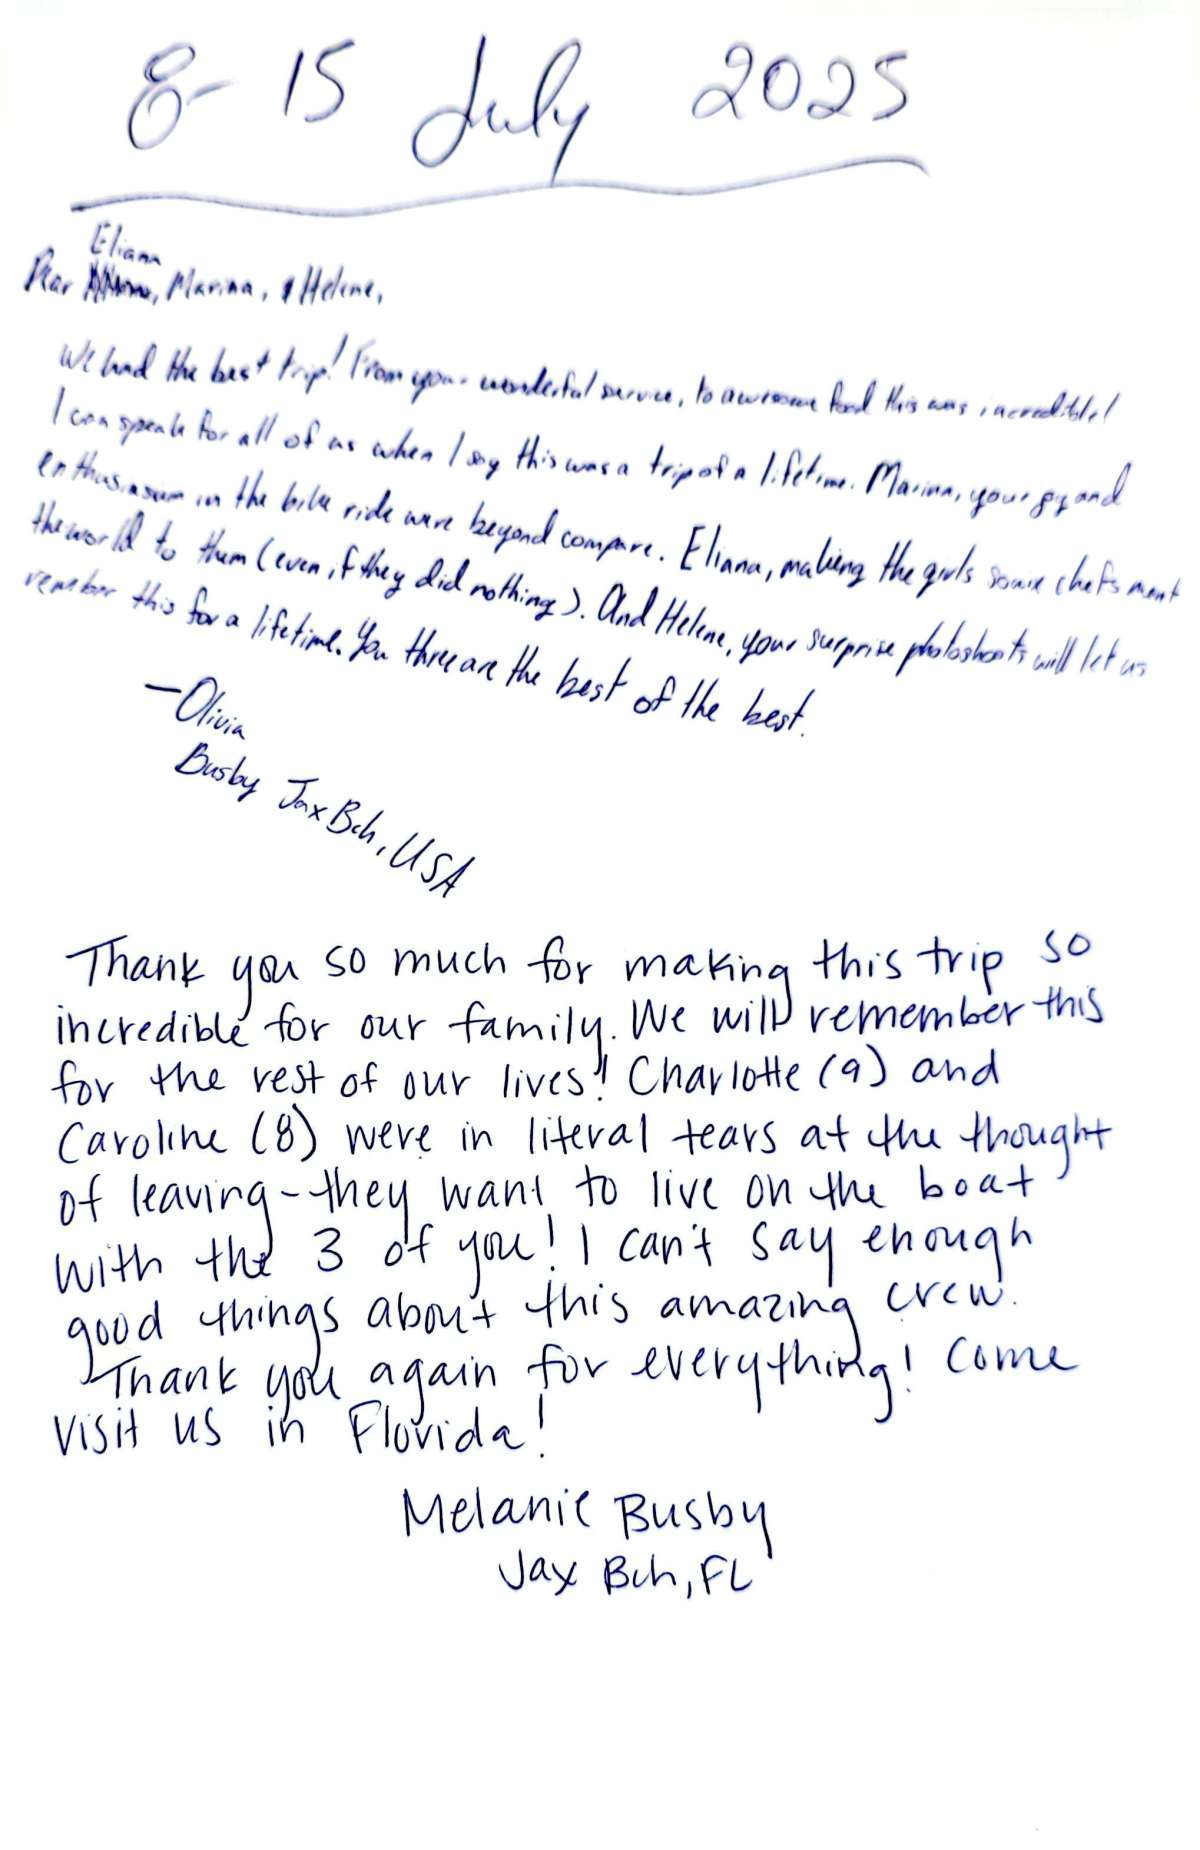 8-15 July 2025
Eliana
Dear , Marina, & Helene,
We had the best trip! From your wonderful service, to awesome food this was incredible!
I can speak for all of us when I say this was a trip of a lifetime. Marina, your joy and
enthusiasm in the bike ride were beyond compare. Eliana, making the girls souix chefs ment
the world to them (even if they did nothing). And Helene, your surprise photoshoots will let us
remember this for a lifetime. You three are the best of the best.
—Olivia
Busby Jax Bch, USA
Thank you so much for making this trip so
incredible for our family. We will remember this
for the rest of our lives! Charlotte (9) and
Caroline (8) were in literal tears at the thought
of leaving - they want to live on the boat
with the 3 of you! I can't say enough
good things about this amazing crew.
Thank you again for everything! Come
visit us in Florida!
Melanie Busby
Jax Bch, FL